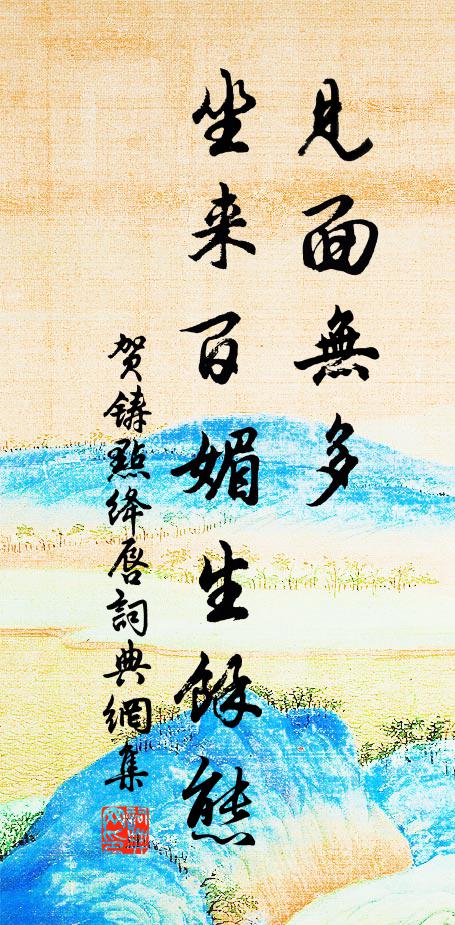 見面無多
坐来百媚生餘態
贺鑄點绛唇詞典網集